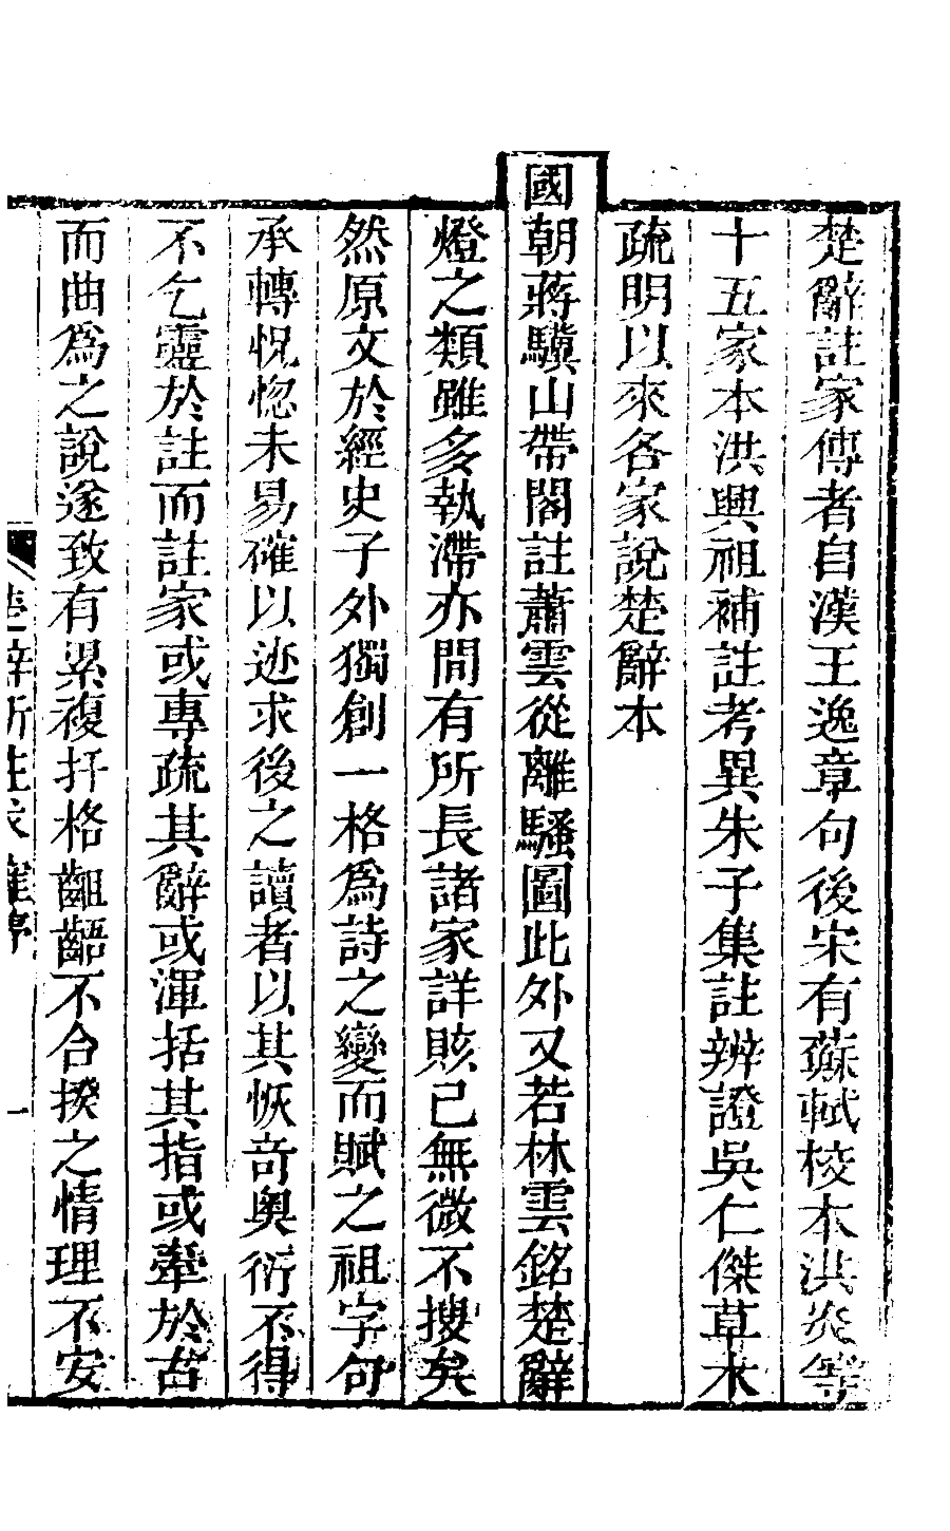 楚辭註家傳者自漢王逸章句後宋有蘇軾校本洪炎等
十五家本洪興祖補註考異朱子集註辨證吳仁傑草木
疏明以來各家說楚辭本
國朝蔣驥山帶閣註蕭雲從離騷圖此外又若林雲銘楚辭
燈之類雖多執滯亦間有所長諸家詳賅已無微不搜矣
然原文於經史子外獨創一格為詩之變而賦之祖字句
承轉怳惚未易確以迹求後之讀者以其恢竒奧衍不得
不乞靈於註而註家或專疏其辭或渾括其指或牽於古
而曲為之說遂致有累複扞格齟齬不合揆之情理不安
楚辭新註求確序
一